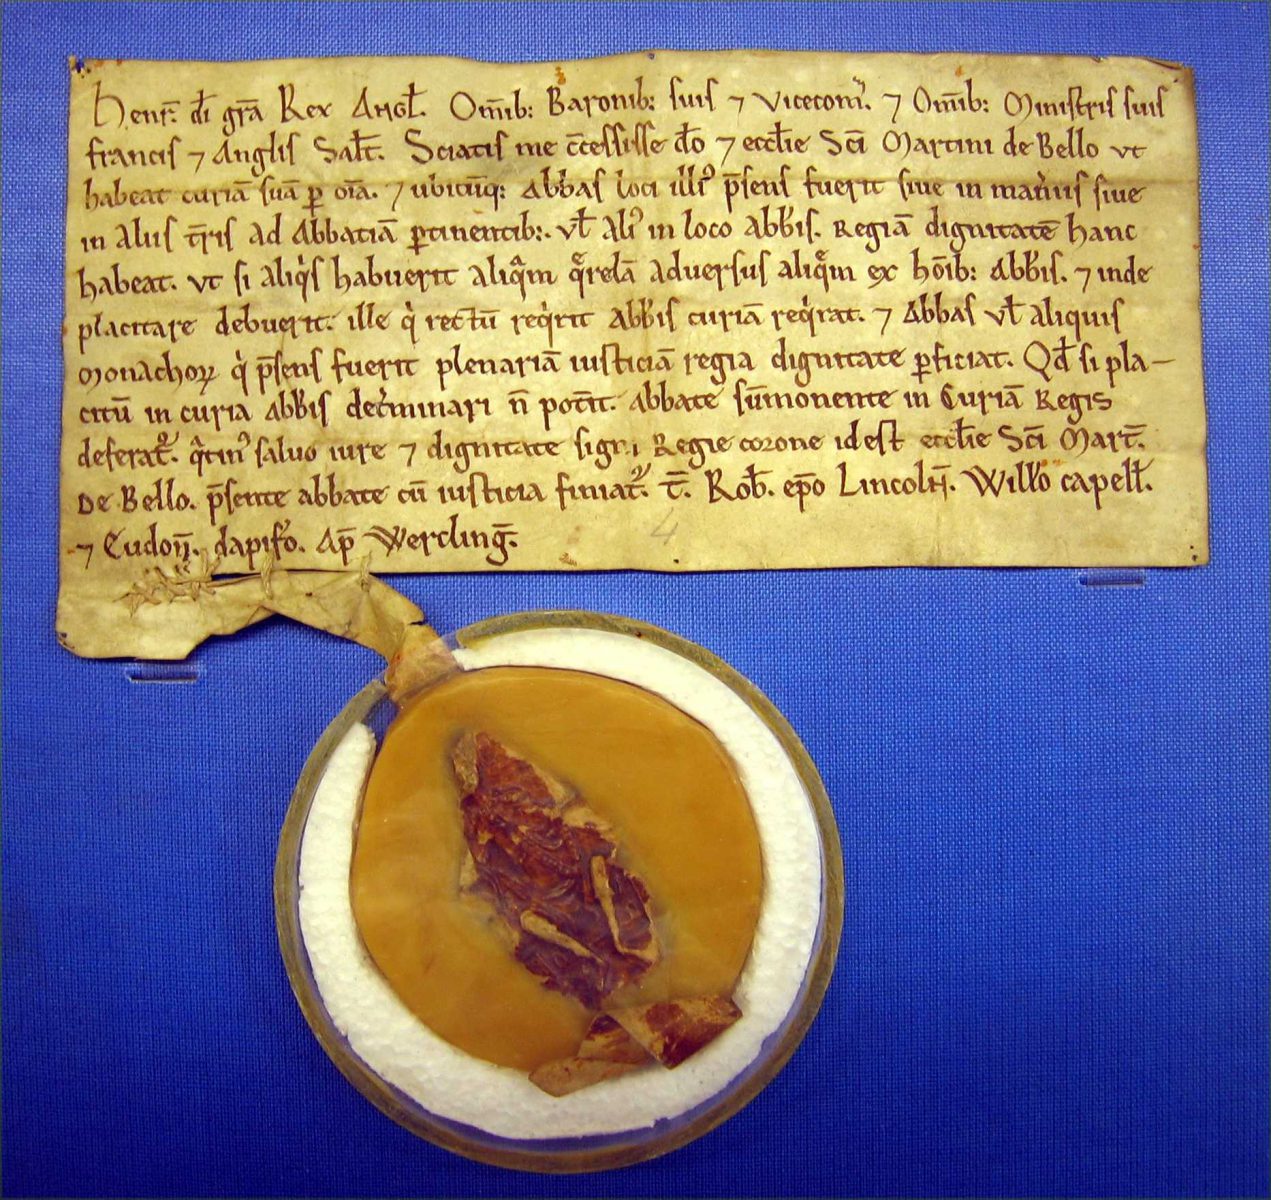 Henr̄. dī grā Rex Angł. Om̄ib: Baronib: suis ⁊ vicecom̄. ⁊ Om̄ib: Ministris suis
francis ⁊ Anglis Sał̄t. Sciatis me c̄cessisse dō ⁊ ecclie Sc̄i Martini de Bello vt
habeat curiā suā p̱ oīa. ⁊ ubicūq: abb̄as loci illi᷒ p̄sens fuerit siue in maner̄iis siue
in aliis tr̄ris ad Abbatiā ꝑtinentib:. vł aliᷣ in loco abb̄is. regiā dignitatē hanc
habeat. vt si aliqͥs habuerit aliqͣm q̄relā aduersus aliq̄m ex hōib: abb̄is. ⁊ inde
placitare debuerit. ille qͥ rectū reqͥrit abb̄is curiā reqͥrat. ⁊ Abb̄as vł aliquis
monachoꝝ qͥ p̄sens fuerit plenariā iusticiā regia dignitate ꝑficiat. Qd̄ si pla-
citū in curia abb̄is det̄minari n̄ pot̄it. abbate sūmonente in Curiā Regis
deferat᷑. qͣtin᷒ saluo iure ⁊ dignitate sigñi Regie corone idest ecclie Sc̄i Mart̄.
de Bello. p̄sente abbate cū iusticia finiat᷑. T̄. Rob̄. ep̄o Lincolń. Will̄o capell̄.
⁊ Eudoñ. dapif̄o. Ap̄ Werclinḡ.
4